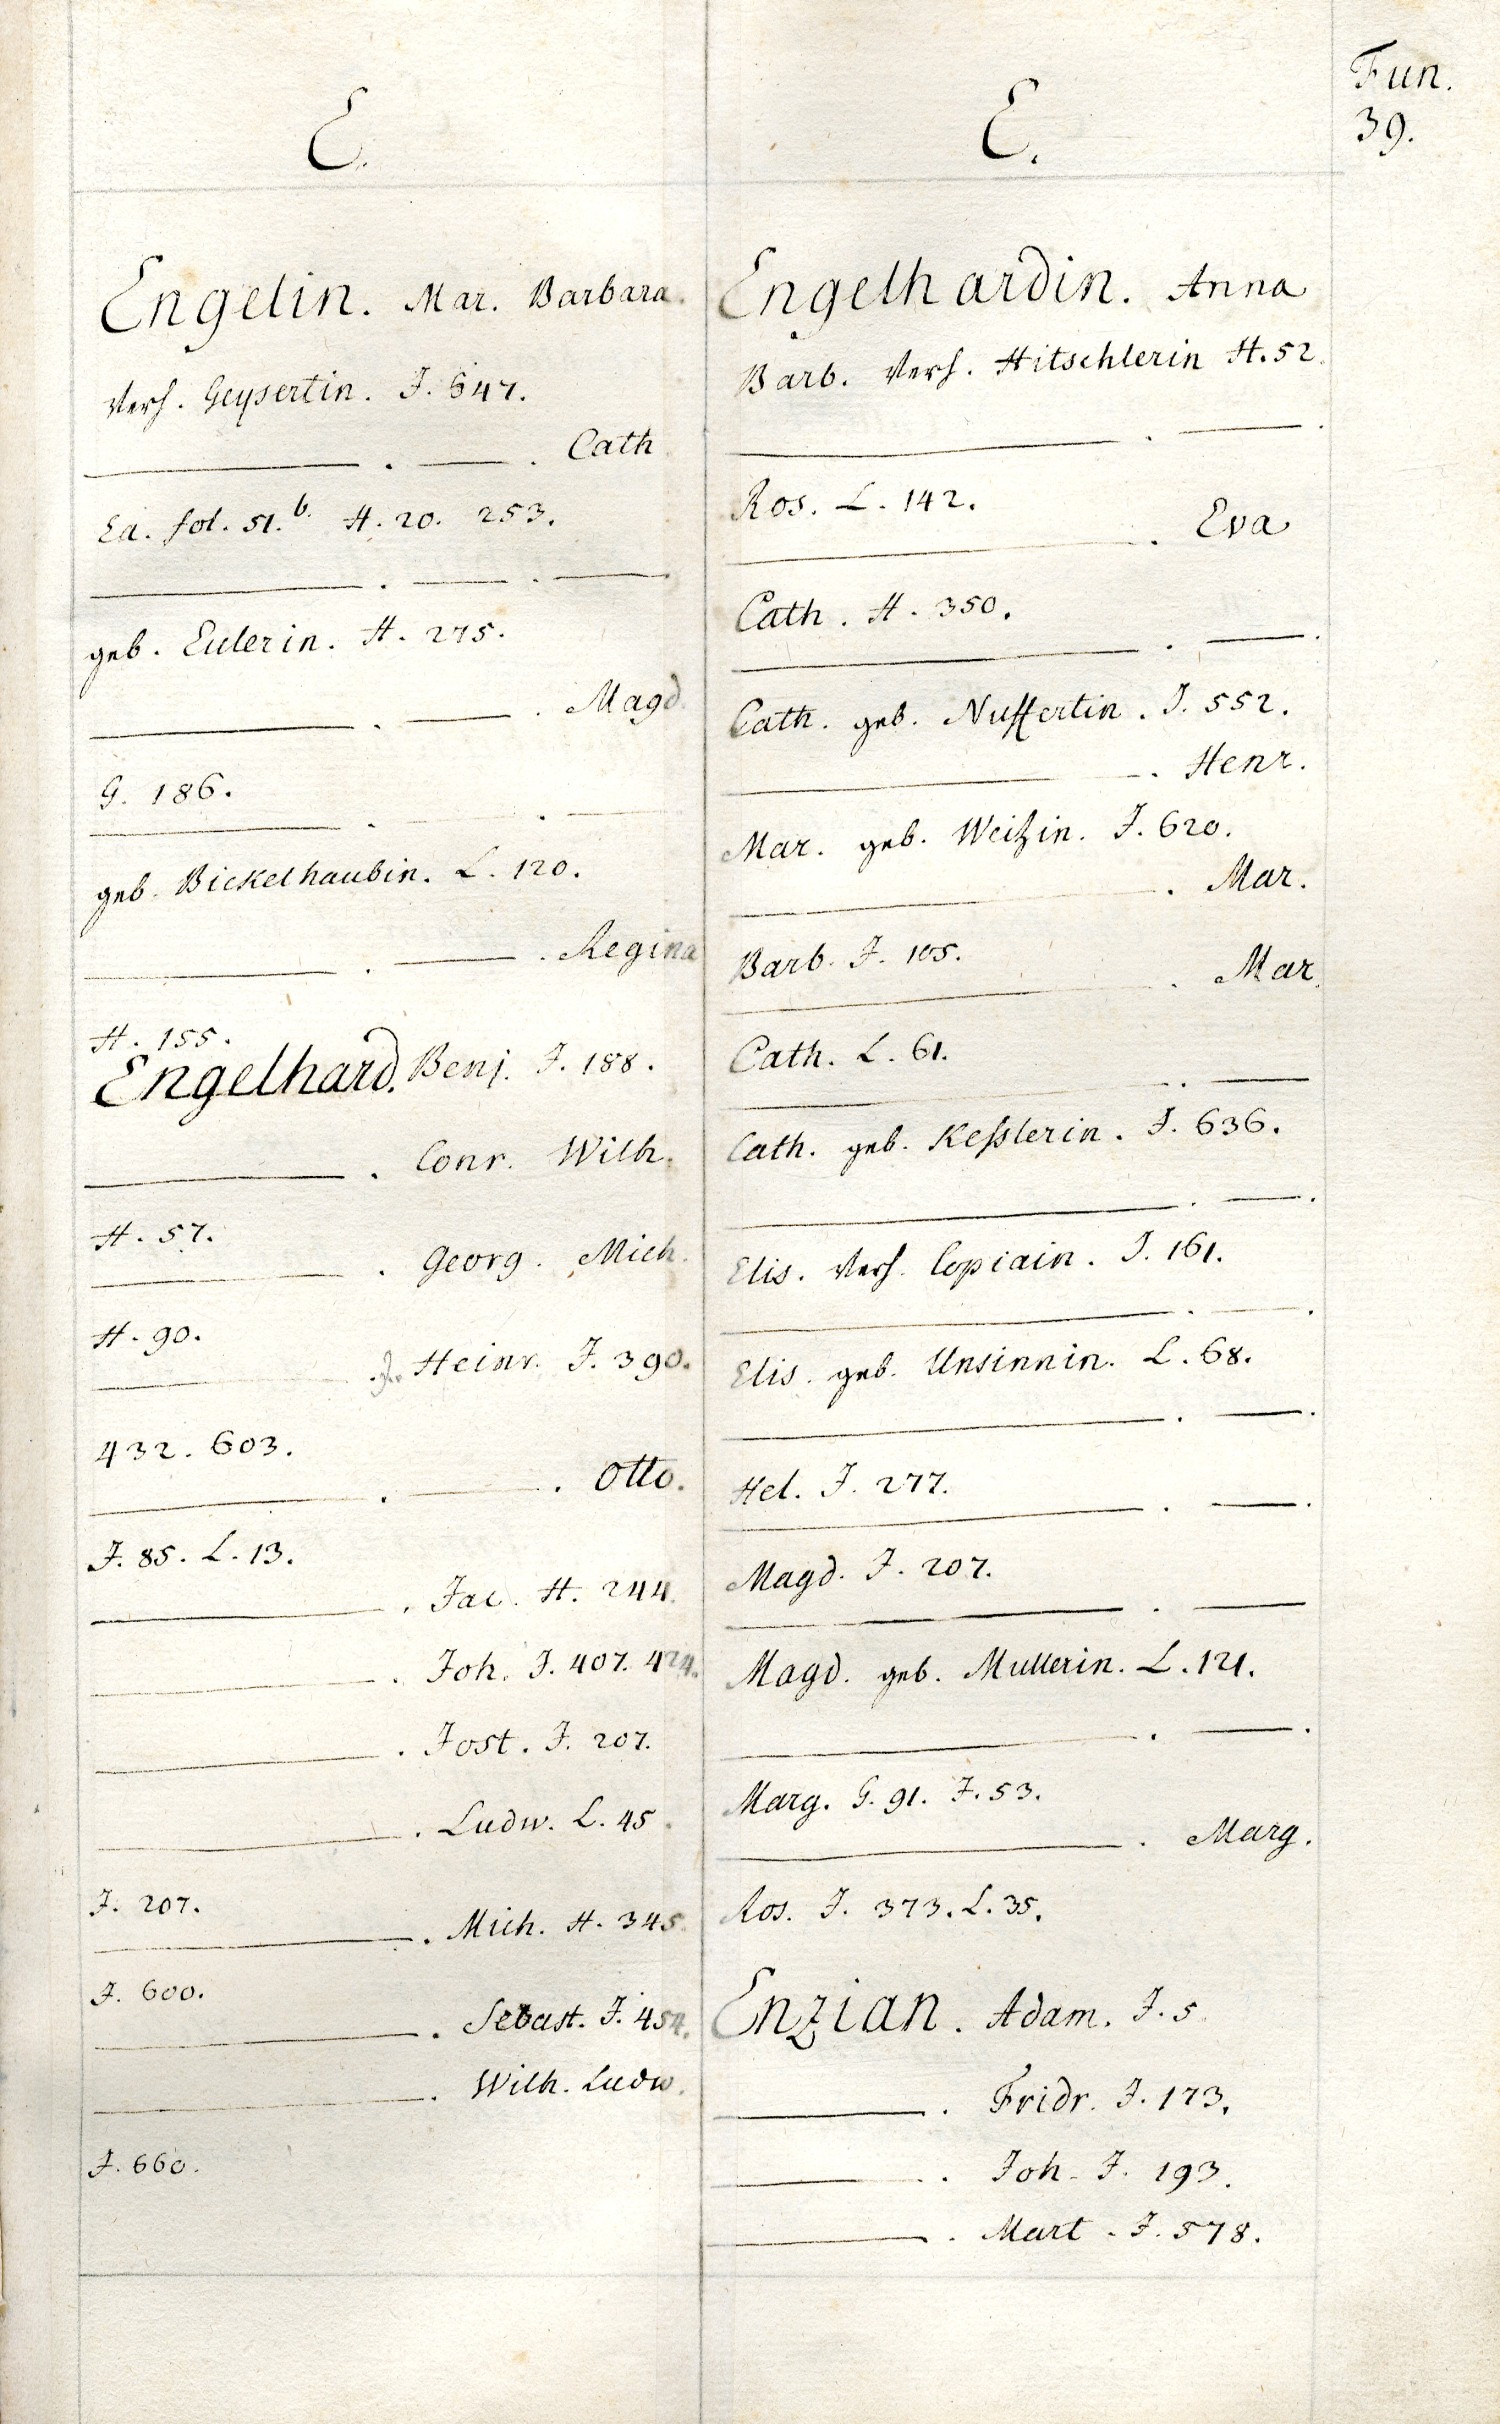 Fun.
39.
E.
Engelin. Mar. Barbara.
Verh. Geysertin. J. 647.
——— . — . Cath
Ea. fol. 51.b. H. 20. 253.
——— . — . —.
geb. Eulerin. H. 275.
——— . — . Magd.
G. 186.
——— . — . —
geb. Bickelhaubin. L. 120.
——— . — . Regina
H. 155.
Engelhard. Benj. J. 188.
——— . Conr. Wilh.
H. 57.
——— . Georg. Mich.
H. 90.
——— . Heinr. J. 390.
432. 603.
——— . — . Otto.
J. 85. L. 13.
——— . Jac. H. 244.
——— . Joh. J. 407. 424.
——— . Jost. J. 207.
——— . Ludw. L. 45.
J. 207.
——— . Mich. H. 345.
J. 600.
——— . Sebast. J. 454.
——— . Wilh. Ludw.
J. 660.
E.
Engelhardin. Anna
Barb. Verh. Hitschlerin H. 52.
——— . —.
Ros. L. 142.
——— . Eva
Cath. H. 350.
——— . —.
Cath. geb. Nuffertin. J. 552.
——— . Henr.
Mar. geb. Weißin. J. 620.
——— . Mar.
Barb. J. 105.
——— . Mar.
Cath. L. 61.
——— . —
Cath. geb. Keßlerin. J. 636.
——— . —.
Elis. Verh. Copiain. J. 161.
——— . —.
Elis. geb. Unsinnin. L. 68.
——— . —.
Hel. J. 277.
——— . —.
Magd. J. 207.
——— . —
Magd. geb. Mullerin. L. 121.
——— . —.
Marg. G. 91. J. 53.
——— . Marg.
Ros. J. 373. L. 35.
Enzian. Adam. J. 5.
——— . Fridr. J. 173.
——— . Joh. J. 193.
——— . Mart. J. 578.